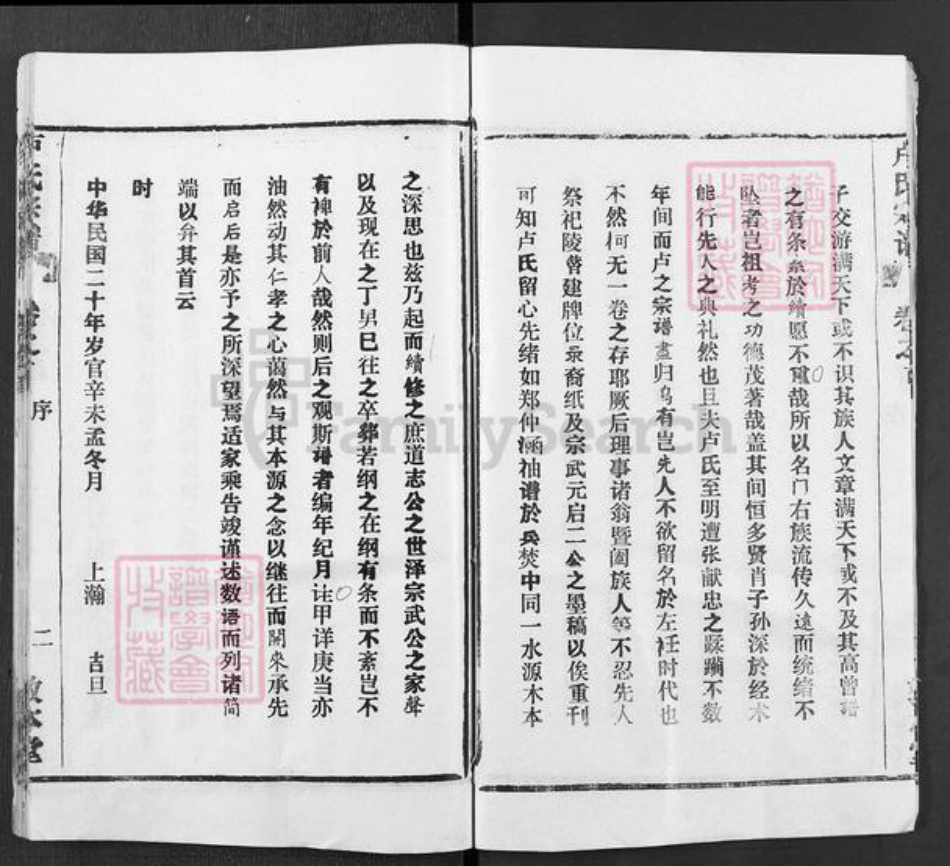 卢氏宗谱
子交游满天下或不识其族人文章满天下或不及其高曾谱
之有条系於续愿不重哉所以名门右族流传久远而统绪不
坠者岂祖考之功德茂著哉盖其间恒多贤肖子孙深於经术
能行先人之典礼然也且夫卢氏至明遭张献忠之蹂躏不数
年间而卢之宗谱尽归乌有岂先人不欲留名於左衽时代也
不然何无一卷之存耶厥后理事诸翁暨阖族人等不忍先人
祭祀陵替建牌位录裔纸及宗武元启二公之墨稿以俟重刊
可知卢氏留心先绪如郑仲涵袖谱於兵焚中同一水源木本
之深思也兹乃起而续修之庶道志公之世泽宗武公之家声
以及现在之丁男已往之卒葬若纲之在纲有条而不紊岂不
有裨於前人哉然则后之观斯谱者编年纪月注甲详庚当亦
油然动其仁孝之心蔼然与其本源之念以继往而开来承先
而启后是亦予之所深望焉适家乘告竣谨述数语而列诸简
端以弁其首云
时
中华民国二十年岁官辛未孟冬月 上瀚 吉旦
序
二
谱学会
收藏
FamilySearch